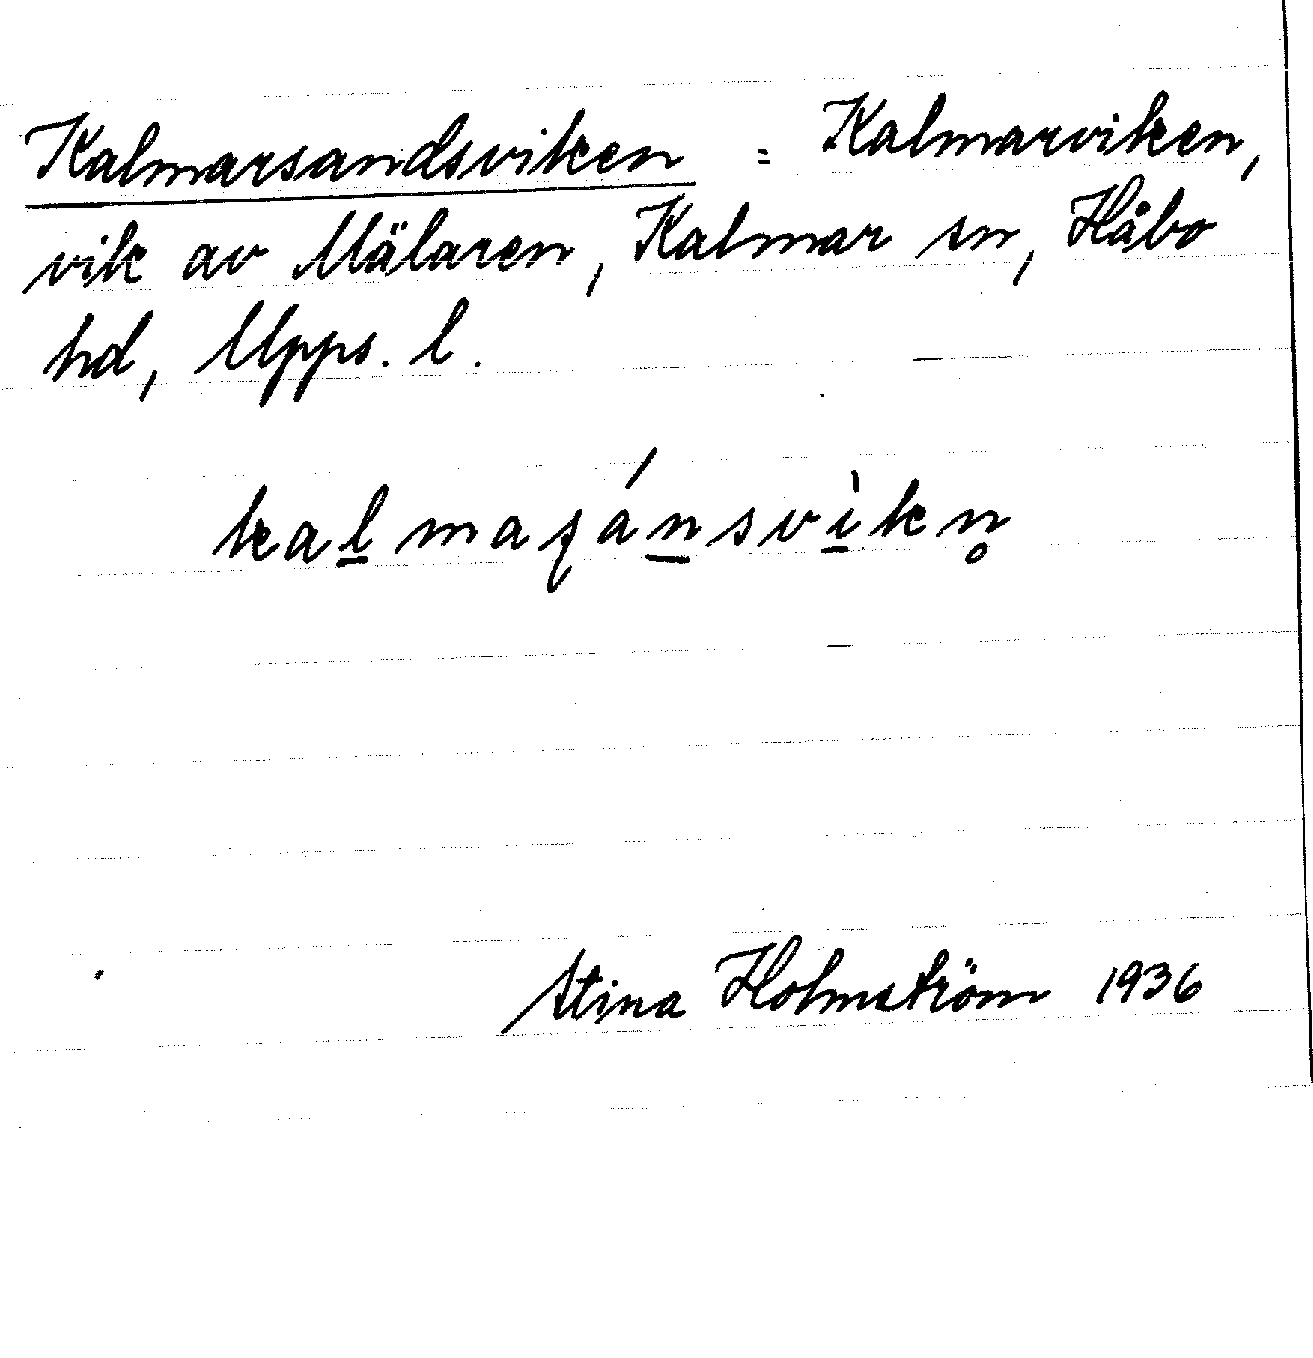 Kalmarsandsviken = Kalmarviken,
vik av Mälaren, Kalmar sn, Håbo
hd, Upps. l.
kal̲maʂán̲svì̲kn̥
Stina Holmström 1936